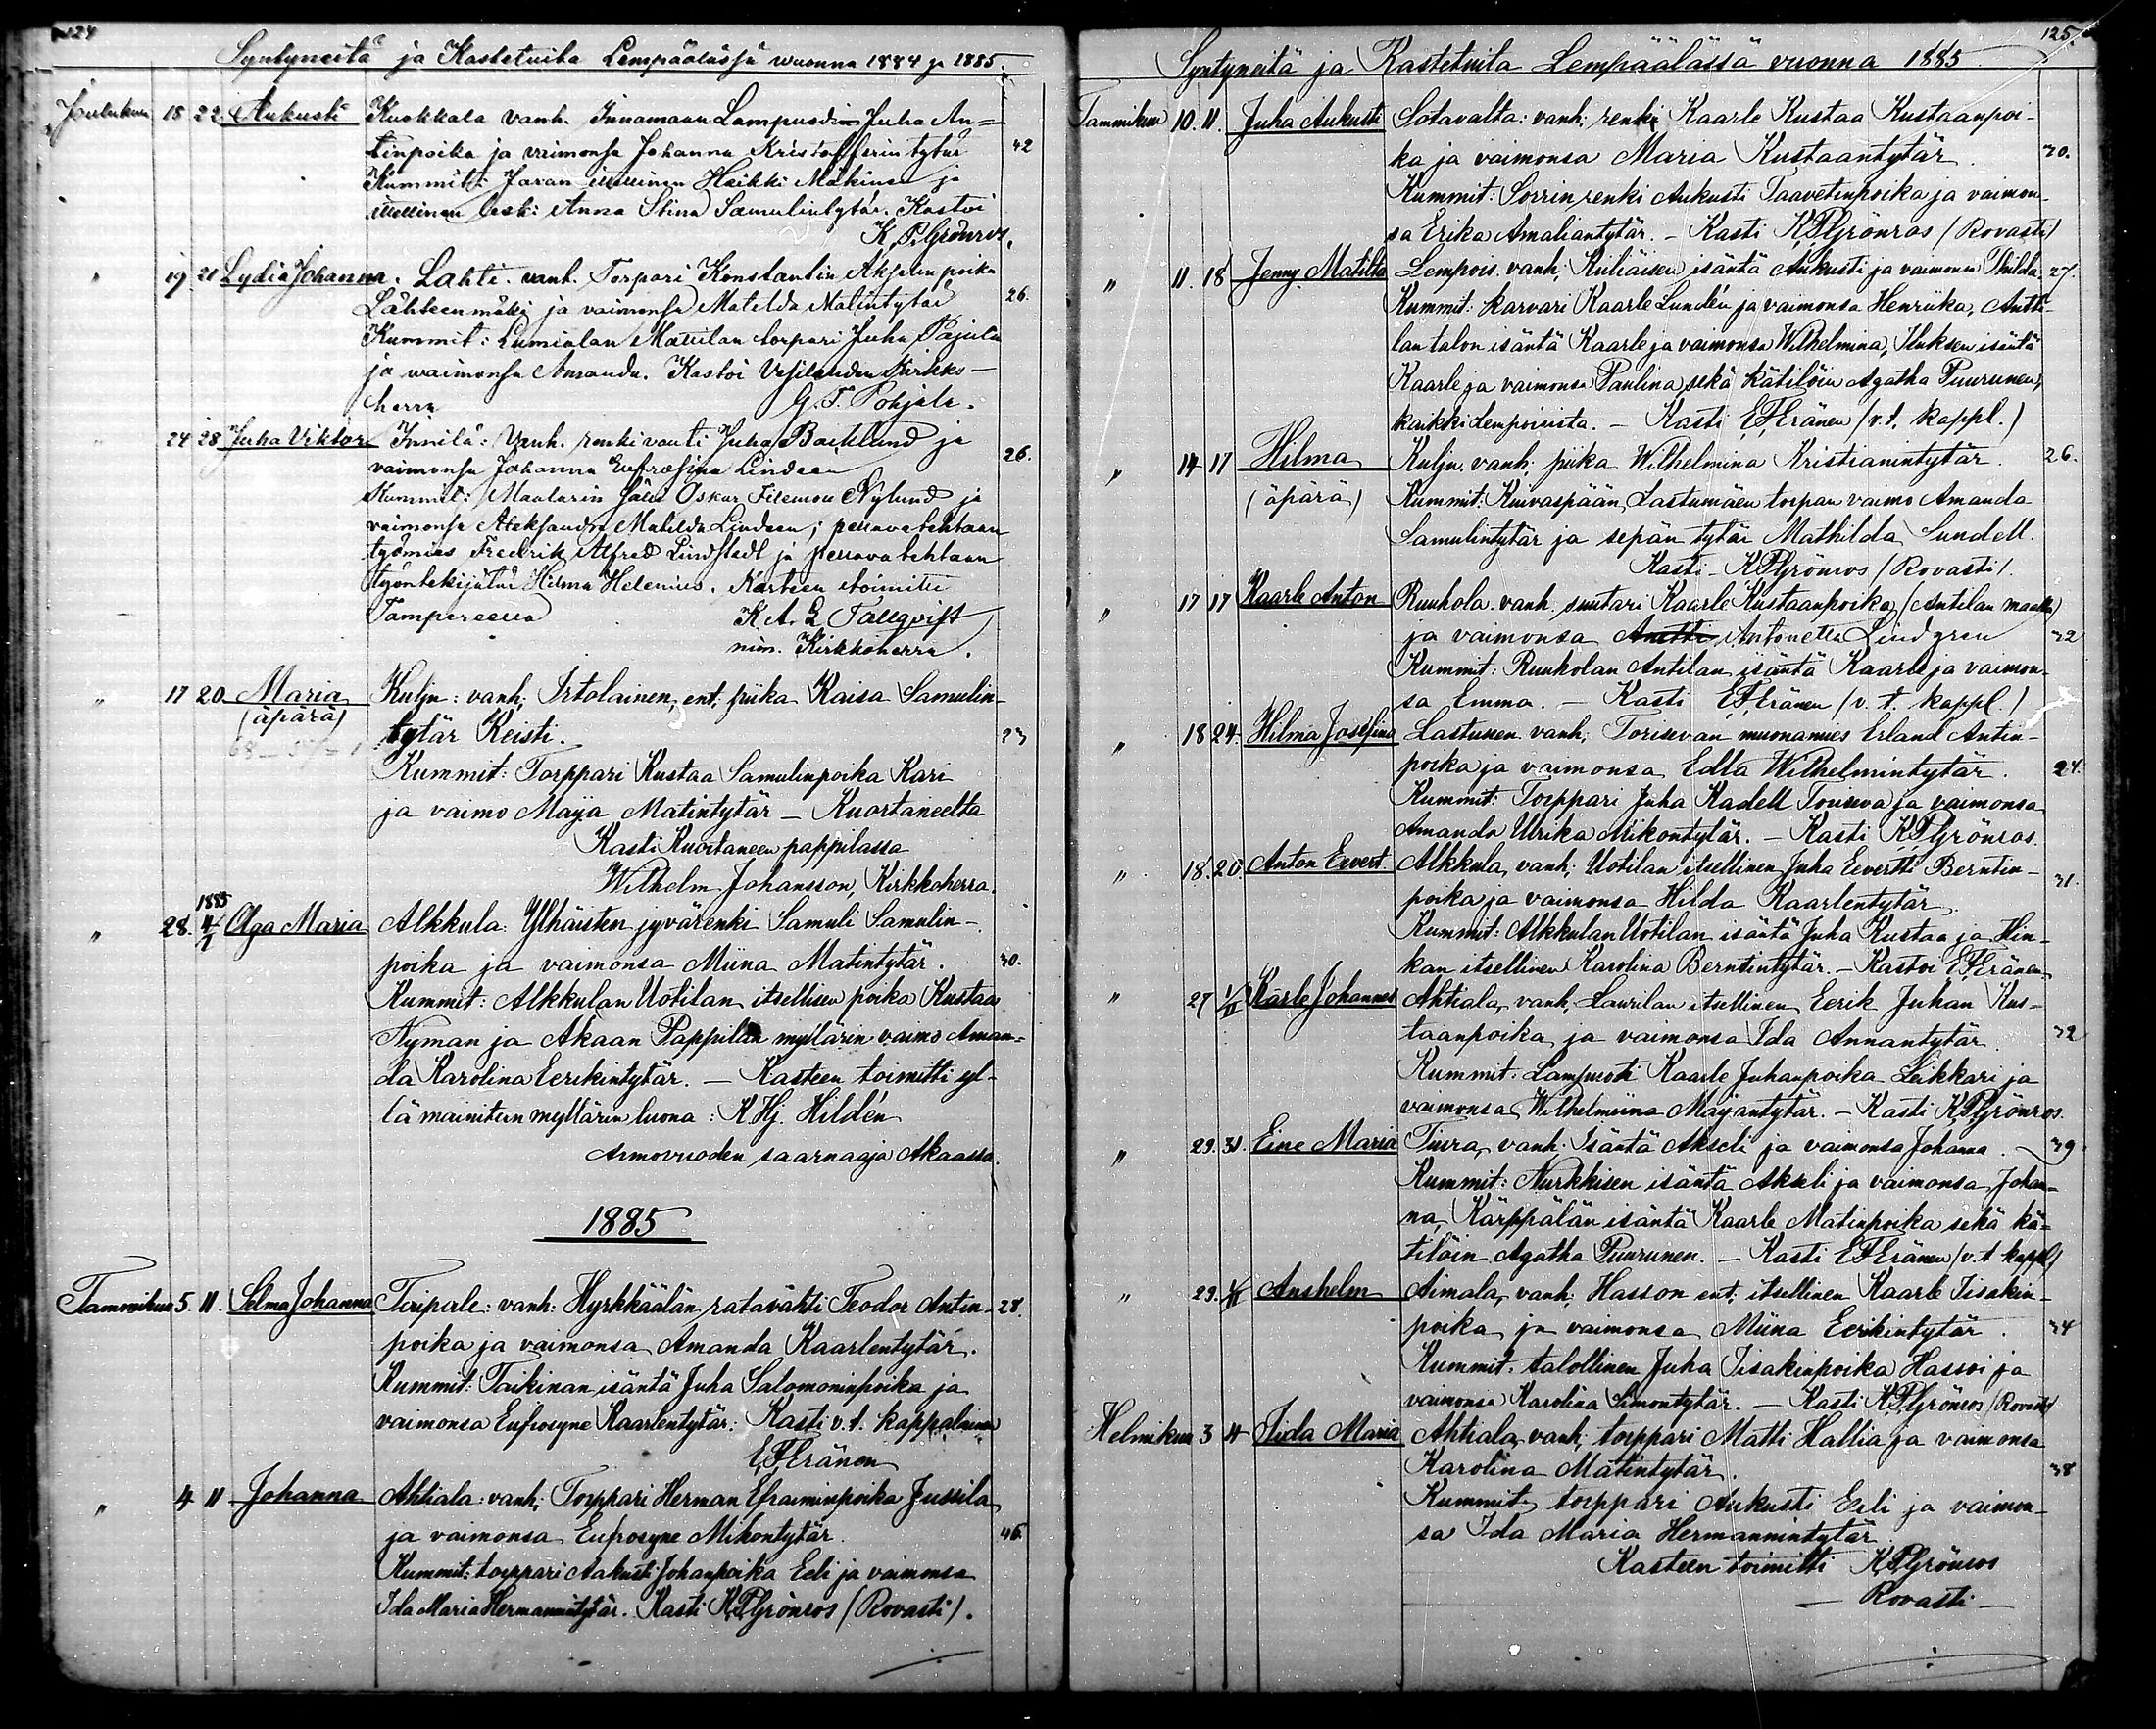 124
Syntyneitä ja Kastetuita Lempäälässä wuonna 1884 ja 1885.
Joulukuu 18 22 Aukusti Kuokkala vanh. Innamaan Lampuodin Juha An=
tinpoika ja vaimonsa Johanna Kristofferin tytär 42
Kummit: Javan itsellinen Heikki Mäkinen ja
itsellinen leski Anna Stina Samulintytär. Kastoi
K. P. Grönros.
" 19 21 Lydia Johanna. Lahti. vanh. Torpari Konstantin Akselinpoika
Lähteenmäki ja vaimonsa Matilda Matintytär 26.
Kummit: Lumialan Mattilan torpari Juha Pajula
ja waimonsa Amanda. Kastoi Vesilahden Kirkko-
herra G. T. Pohjala.
" 24 28 Juha Viktor Innilä: Vanh. renkivouti Juha Backlund ja
vaimonsa Johanna Eufrosina Lindeen 26.
Kummit: Maalarin Sälli Oskar Filemon Nylund ja
vaimonsa Aleksandra Matilda Lindeen; pellavatehtaan
työmies Fredrik Alfred Lindstedt ja pellavatehtaan
työntekijätär Hilma Helenius. Kasteen toimitti
Tampereella K. A. L. Tallqvist
nim. Kirkkoherra.
" 17 20 Maria Kulju: vanh; Irtolainen, ent. piika Kaisa Samulin-
(äpärä) tytär Keisti. 23
Kummit: Torppari Kustaa Samulinpoika Kari
ja vaimo Maija Matintytär – Kuortaneelta
Kasti Kuortaneen pappilassa
Wilhelm Johansson, Kirkkoherra.
1885
" 28. 4/1 Olga Maria Alkkula: Ylhäisten jyvärenki Samuli Samulin-
poika ja vaimonsa Miina Matintytär. 30.
Kummit: Alkkulan Uotilan itsellisen poika Kustaa
Nyman ja Akaan Pappilan myllärin vaimo Aman=
da Karolina Eerikintytär. – Kasteen toimitti yl-
lä mainitun myllärin luona: K. Hj. Hildén
Armovuoden saarnaaja Akaassa.
1885
Tammikuu 5 11. Selma Johanna Taipale: vanh: Hyrkkäälän ratavahti Teodor Antin- 28.
poika ja vaimonsa Amanda Kaarlentytär.
Kummit: Taikinan isäntä Juha Salomoninpoika ja
vaimonsa Eufrosyne Kaarlentytär: Kasti v.t. kappalainen
E. F. Eränen
" 4 11 Johanna Ahtiala: vanh; Torppari Herman Efraiminpoika Jussila
ja vaimonsa Eufrosyne Mikontytär. 46.
Kummit: torppari Aukusti Johanpoika Eeli ja vaimonsa
Ida Maria Hermannintytär. Kasti K. P. Grönros (Rovasti).
125.
Syntyneitä ja Kastetuita Lempäälässä vuonna 1885
Tammikuu 10. 11. Juha Aukusti Sotavalta: vanh; renki Kaarle Kustaa Kustaanpoi-
ka ja vaimonsa Maria Kustaantytär. 30.
Kummit: Sorrin renki Aukusti Taavetinpoika ja vaimon-
sa Erika Amaliantytär. – Kasti K. P. Grönros (Rovasti)
" 11. 18 Jenny Matilta Lempois. vanh; Kuliaisen isäntä Aukusti ja vaimonsa Thilda. 27.
Kummit: karvari Kaarle Lundén ja vaimonsa Henriika, Antti-
lan talon isäntä Kaarle ja vaimonsa Wilhelmina, Kuksen isäntä
Kaarle ja vaimonsa Paulina sekä kätilöin Agatha Puurunen,
kaikki Lempoisista. – Kasti E. F. Eränen (v.t. kappl.)
" 14 17 Hilma Kulju. vanh: piika Wilhelmina Kristianintytär. 26.
(äpärä) Kummit: Kuivaspään Lastumäen torpan vaimo Amanda
Samulintytär ja sepän tytär Mathilda Sundell.
Kasti – K. P. Grönros (Rovasti).
" 17 17 Kaarle Anton Ruuhola. vanh. suutari Kaarle Kustaanpoika (Antilan maalla)
ja vaimonsa Antti Antonetta Lindgren 32
Kummit: Ruuholan Antilan isäntä Kaarle ja vaimon-
sa Emma. – Kasti E. F. Eränen (v.t. kappl.)
" 18 24. Hilma Josefina Lastunen. vanh; Torisevan muonamies Erland Antin-
poika ja vaimonsa Edla Wilhelmintytär. 24.
Kummit: Torppari Juha Kadell Toriseva ja vaimonsa
Amanda Ulrika Mikontytär. – Kasti K. P. Grönros.
" 18. 20 Anton Evert. Alkkula, vanh; Uotilan itsellinen Juha Eevertti Berntin-
poika ja vaimonsa Hilda Kaarlentytär. 31.
Kummit: Alkkulan Uotilan isäntä Juha Kustaa ja Hin-
kan itsellinen Karolina Berntintytär. – Kastoi E. F. Eränen.
" 27 1/II Kaarle Johannes Ahtiala, vanh, Laurilan itsellinen Eerik Juhan Kus-
taanpoika ja vaimonsa Ida Annantytär. 32
Kummit: Lampuoti Kaarle Juhanpoika Leikkari ja
vaimonsa Wilhelmiina Maijantytär. – Kasti K. P. Grönros.
" 29. 31. Eine Maria Tuira, vanh. Isäntä Akseli ja vaimonsa Johanna. 39
Kummit: Nurkkisen isäntä Akseli ja vaimonsa Johan-
na, Kärppälän isäntä Kaarle Matinpoika sekä kä-
tilöin Agatha Puurunen. – Kasti E. F. Eränen (v.t. kappl)
" 29. 1/II Anshelm Aimala, vanh; Hasson ent. itsellinen Kaarle Iisakin-
poika ja vaimonsa Miina Eerikintytär. 34
Kummit: talollinen Juha Iisakinpoika Hassoi ja
vaimonsa Karolina Simontytär. – Kasti K. P. Grönros (Rovasti)
Helmikuu 3 4 Iida Maria Ahtiala, vanh; torppari Matti Hallia ja vaimonsa
Karolina Matintytär. 38
Kummit: torppari Aukusti Eeli ja vaimon-
sa Ida Maria Hermannintytär
Kasteen toimitti K. P. Grönros
– Rovasti –